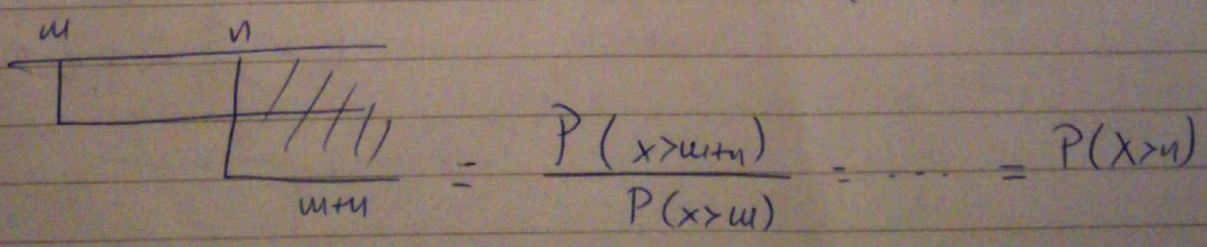 m n
m+n = P(x>m+n) / P(x>m) = ... = P(X>n)